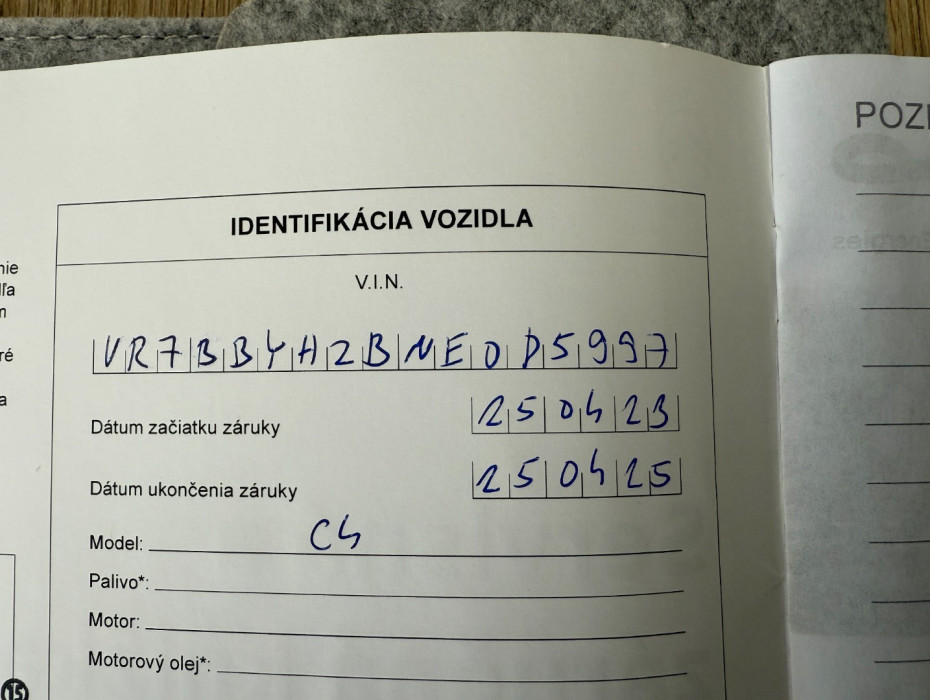 POZ
IDENTIFIKÁCIA VOZIDLA
nie
V.I.N.
ľa
m
ré
VR7BBYH2BNE0D5997
a
Dátum začiatku záruky 250423
Dátum ukončenia záruky 250425
Model: C4
Palivo*:
Motor:
Motorový olej*:
15